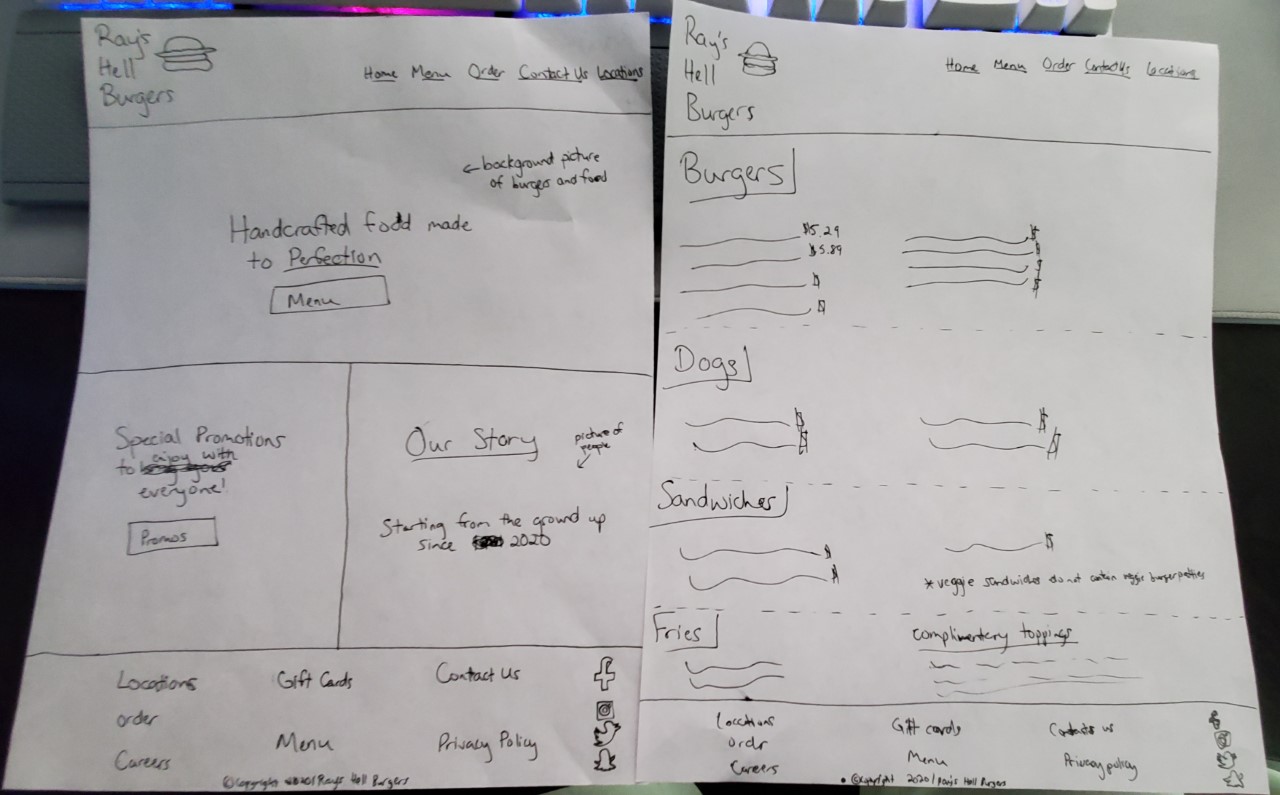 Ray's
Hell
Burgers
Home Menu Order Contact Us Locations
←background picture
of burgers and food
Handcrafted food made
to Perfection
Menu
Special Promotions
to enjoy with
everyone!
Promos
Our Story
picture of
people
Starting from the ground up
since 2020
Locations Gift Cards Contact Us
order
Menu Privacy Policy
Careers
©Copyright 2020/Ray's Hell Burgers
Ray's
Hell
Burgers
Home Menu Order Contact Us Locations
Burgers
$5.29
$5.89
$
$
$
$
$
$
Dogs
$ $
$ $
Sandwiches
$ $
$
*veggie sandwiches do not contain veggie burger patties
Fries
complimentery toppings
Locations Gift cards Contact us
Order
Menu Privacy policy
Careers
©Copyright 2020/Ray's Hell Burgers